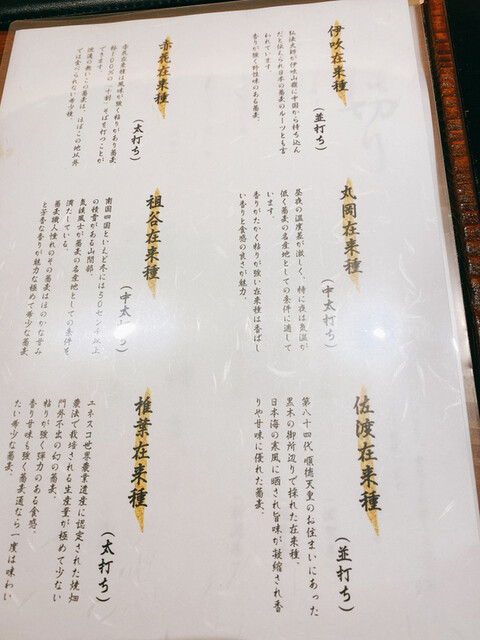 伊吹在来種
(並打ち)
弘法大師が伊吹山麓に中国から持ち込ん
だと伝えられ日本の蕎麦のルーツとも言
われています。
香りが強く野性味のある蕎麦。
赤花在来種
(太打ち)
赤花在来種は風味が強く粘りがあり蕎麦
粉100%の「十割」そばを打つことが
できます。
流通の無いこの蕎麦は、ほぼこの地以外
では食べられない希少種。
丸岡在来種
(中太打ち)
昼夜の温度差が激しく、特に夜は気温が
低く蕎麦の名産地としての条件に適して
います。
香りがたかく粘りが強い在来種は香ばし
い香りと食感の良さが魅力。
祖谷在来種
(中太打ち)
南国四国といえど冬には50センチ以上
の積雪がある山間部。
気候風土が蕎麦の名産地としての条件を
満たしている。
蕎麦職人憧れのその蕎麦はほのかな甘み
と芳香な香りが魅力な極めて希少蕎麦
佐渡在来種
(並打ち)
第八十四代 順徳天皇のお住まいにあった
黒木の御所辺りで採れた在来種。
日本海の寒風に晒され旨味が凝縮され香
りや甘味に優れた蕎麦。
椎葉在来種
(太打ち)
エネスコ世界農業遺産に認定された焼畑
農法で栽培される生産量が極めて少ない
門外不出の幻の蕎麦。
粘りが強く弾力のある食感。
香り甘味も強く蕎麦通なら一度は味わい
たい希少な蕎麦。